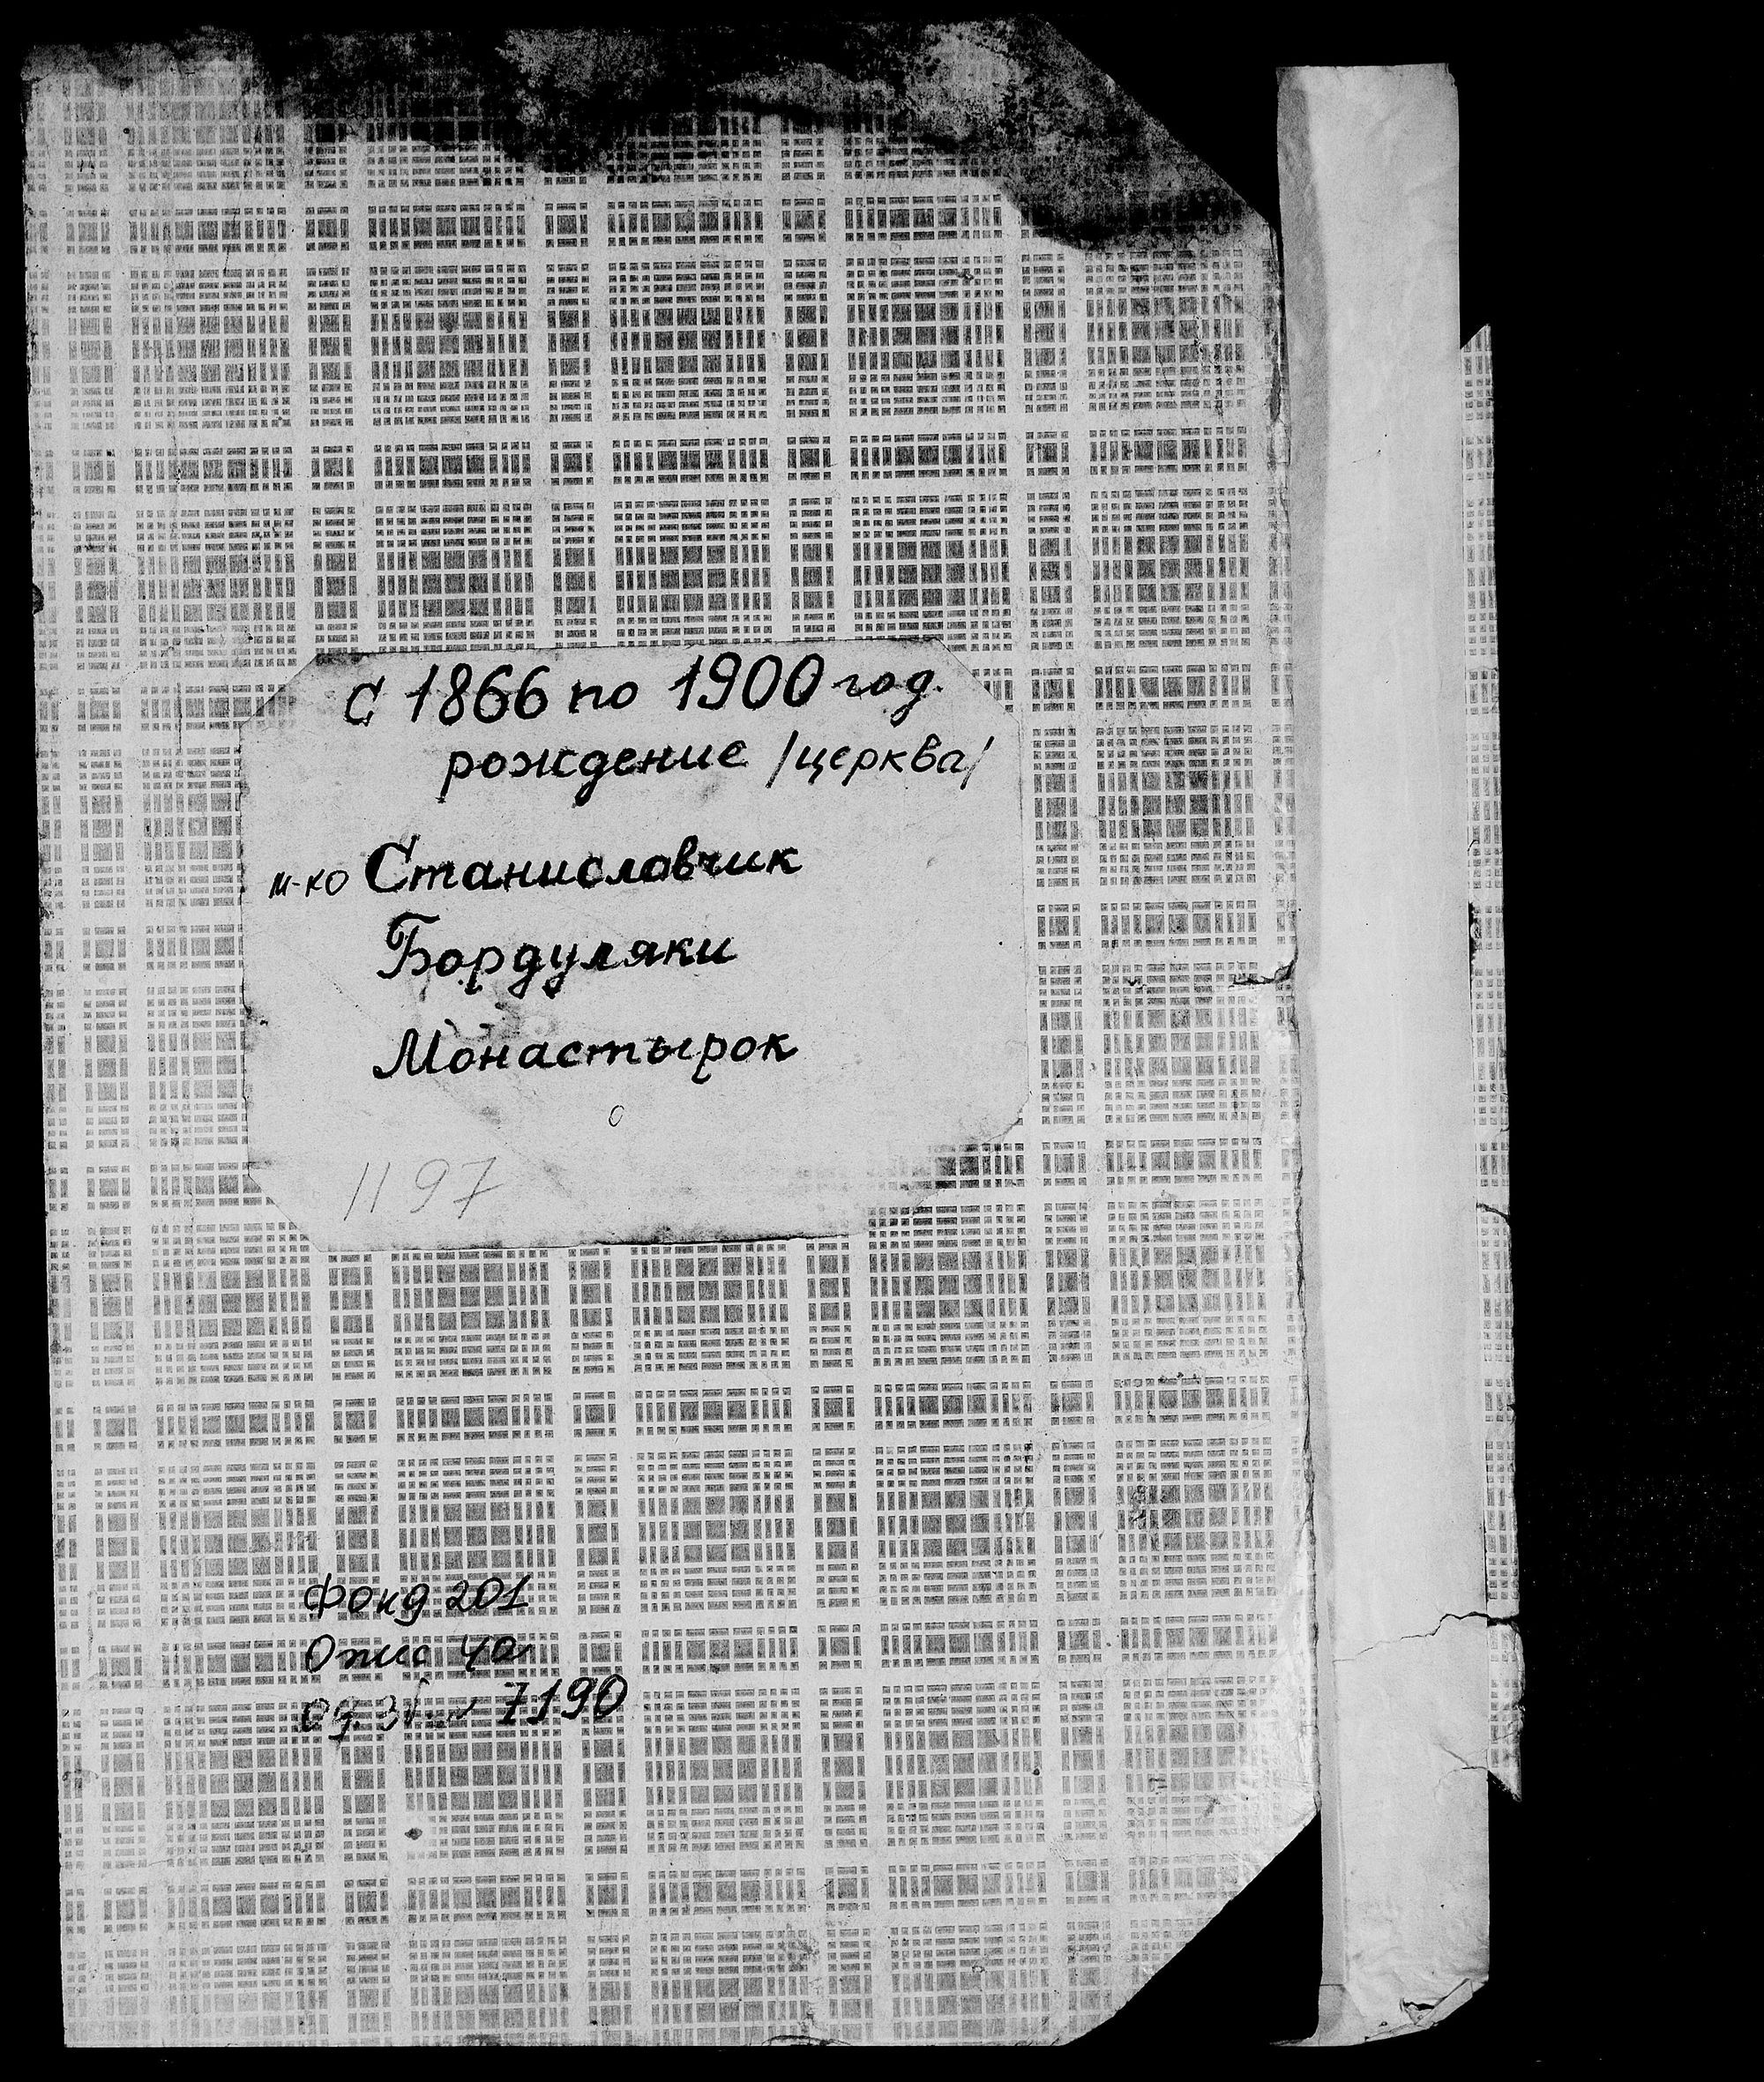 С 1866 по 1900 год.
рождение /церква/
м-ко Станиславчик
Бордуляки
Монастырок
1197
Фонд 201
Опис 4а
од. зб. 7190